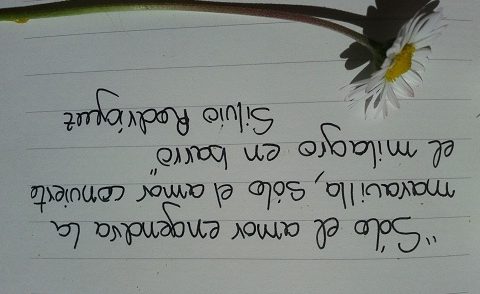 "Sólo el amor engendra la
maravilla, sólo el amor convierte
el milagro en barro"
Silvio Rodríguez